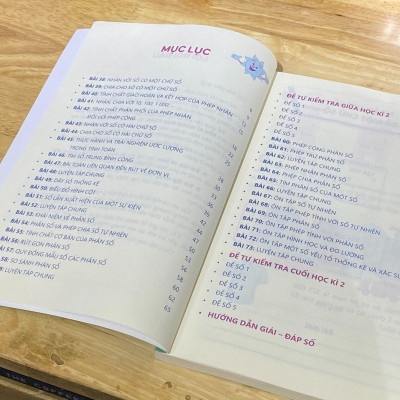 MỤC LỤC
BÀI 38: NHÂN VỚI SỐ CÓ MỘT CHỮ SỐ
BÀI 39: CHIA CHO SỐ CÓ MỘT CHỮ SỐ
BÀI 40: TÍNH CHẤT GIAO HOÁN VÀ KẾT HỢP CỦA PHÉP NHÂN
BÀI 41: NHÂN, CHIA VỚI 10, 100, 1 000
TÍNH CHẤT PHÂN PHỐI CỦA PHÉP NHÂN
ĐỐI VỚI PHÉP CỘNG
BÀI 43: NHÂN VỚI SỐ CÓ HAI CHỮ SỐ
BÀI 44: CHIA CHO SỐ CÓ HAI CHỮ SỐ
BÀI 45: THỰC HÀNH VÀ TRẢI NGHIỆM ƯỚC LƯỢNG
TRONG TÍNH TOÁN
BÀI 46: TÌM SỐ TRUNG BÌNH CỘNG
BÀI 47: BÀI TOÁN LIÊN QUAN ĐẾN RÚT VỀ ĐƠN VỊ
LUYỆN TẬP CHUNG
DÃY SỐ LIỆU THỐNG KÊ
BIỂU ĐỒ HÌNH CỘT
SỐ LẦN XUẤT HIỆN CỦA MỘT SỰ KIỆN
LUYỆN TẬP CHUNG
KHÁI NIỆM VỀ PHÂN SỐ
PHÂN SỐ VÀ PHÉP CHIA SỐ TỰ NHIÊN
TÍNH CHẤT CƠ BẢN CỦA PHÂN SỐ
56: RÚT GỌN PHÂN SỐ
57: QUY ĐỒNG MẪU SỐ CÁC PHÂN SỐ
58: SO SÁNH PHÂN SỐ
LUYỆN TẬP CHUNG
ĐỀ TỰ KIỂM TRA GIỮA HỌC KÌ 2
ĐỀ SỐ 1
ĐỀ SỐ 2
ĐỀ SỐ 3
ĐỀ SỐ 4
ĐỀ SỐ 5
BÀI 60: PHÉP CỘNG PHÂN SỐ
BÀI 61: PHÉP TRỪ PHÂN SỐ
BÀI 62: LUYỆN TẬP CHUNG
BÀI 63: PHÉP NHÂN PHÂN SỐ
BÀI 64: PHÉP CHIA PHÂN SỐ
BÀI 65: TÌM PHÂN SỐ CỦA MỘT SỐ
BÀI 66: LUYỆN TẬP CHUNG
BÀI 67: ÔN TẬP SỐ TỰ NHIÊN
BÀI 68: ÔN TẬP PHÉP TÍNH VỚI SỐ TỰ NHIÊN
BÀI 69: ÔN TẬP PHÂN SỐ
BÀI 70: ÔN TẬP PHÉP TÍNH VỚI PHÂN SỐ
BÀI 71: ÔN TẬP HÌNH HỌC VÀ ĐO LƯỜNG
BÀI 72: ÔN TẬP MỘT SỐ YẾU TỐ THỐNG KÊ VÀ XÁC SU
BÀI 73: LUYỆN TẬP CHUNG
ĐỀ TỰ KIỂM TRA CUỐI HỌC KÌ 2
ĐỀ SỐ 1
ĐỀ SỐ 2
ĐỀ SỐ 3
ĐỀ SỐ 4
ĐỀ SỐ 5
HƯỚNG DẪN GIẢI – ĐÁP SỐ